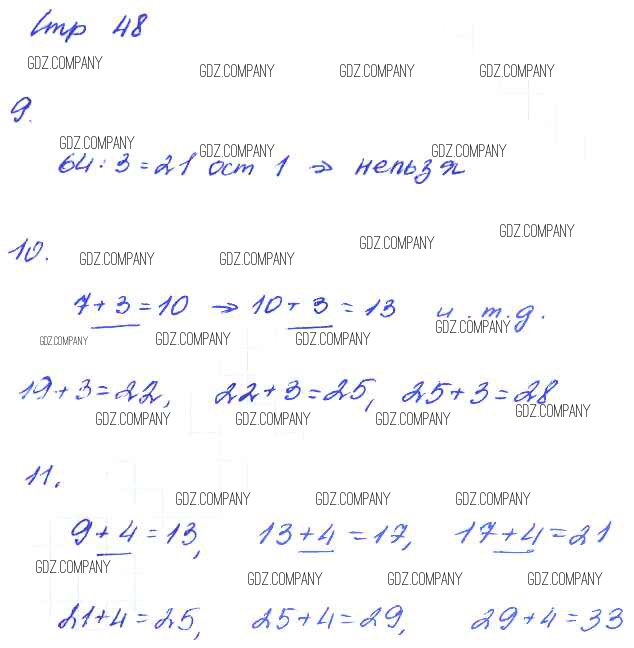 Стр 48
GDZ.COMPANY GDZ.COMPANY GDZ.COMPANY GDZ.COMPANY
9.
GDZ.COMPANY GDZ.COMPANY GDZ.COMPANY
64:3=21 ост 1 → нельзя
10.
GDZ.COMPANY GDZ.COMPANY GDZ.COMPANY GDZ.COMPANY
7+3=10 → 10+3=13 и.т.д.
GDZ.COMPANY GDZ.COMPANY GDZ.COMPANY GDZ.COMPANY
19+3=22, 22+3=25, 25+3=28
GDZ.COMPANY GDZ.COMPANY GDZ.COMPANY GDZ.COMPANY
11.
GDZ.COMPANY GDZ.COMPANY GDZ.COMPANY
9+4=13, 13+4=17, 17+4=21
GDZ.COMPANY GDZ.COMPANY GDZ.COMPANY GDZ.COMPANY
21+4=25, 25+4=29, 29+4=33